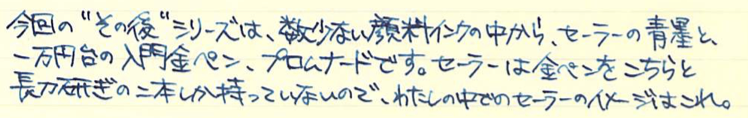 今回の“その後”シリーズは、数少ない顔料インクの中から、セーラーの青墨と、
一万円台の入門金ペン、プロムナードです。セーラーは金ペンをこちらと
長刀研ぎの二本しか持っていないので、わたしの中でのセーラーのイメージはこれ。